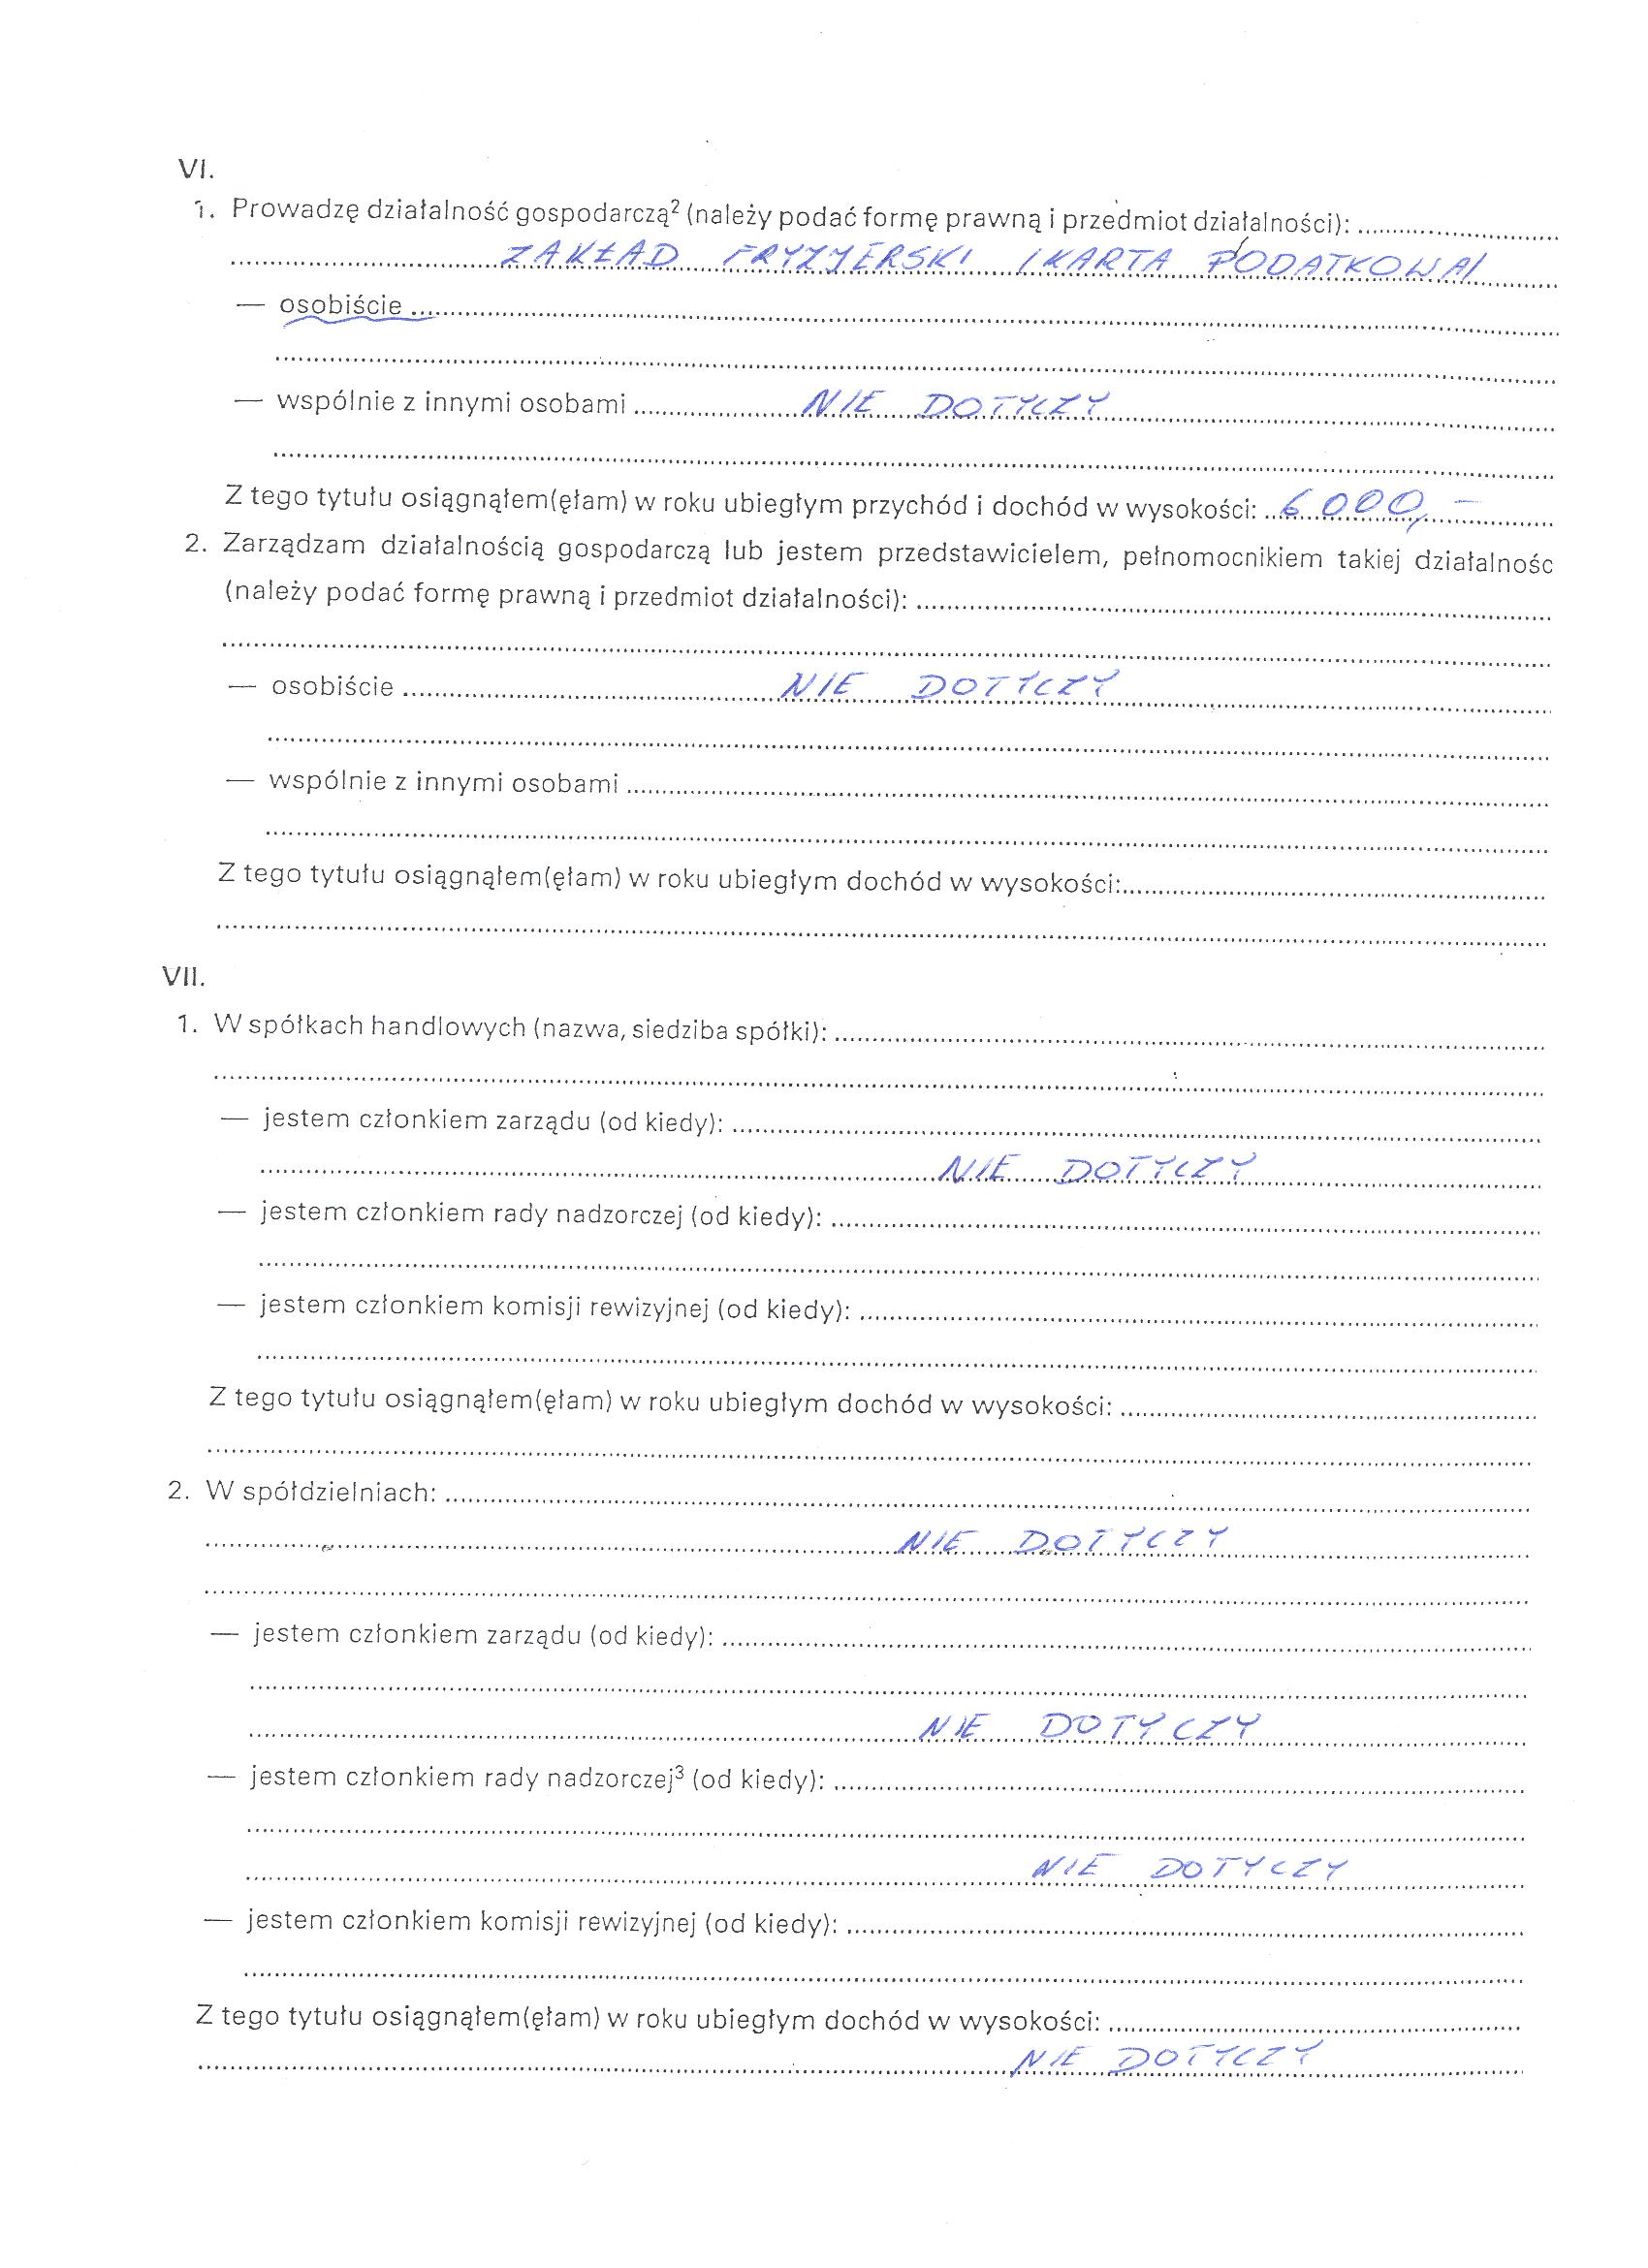 VI.
1. Prowadzę działalność gospodarczą² (należy podać formę prawną i przedmiot działalności): ........
ZAKŁAD FRYZJERSKI /KARTA PODATKOWA/
— osobiście ........
— wspólnie z innymi osobami ........ NIE DOTYCZY
Z tego tytułu osiągnąłem(ęłam) w roku ubiegłym przychód i dochód w wysokości: 6000,-
2. Zarządzam działalnością gospodarczą lub jestem przedstawicielem, pełnomocnikiem takiej działalnośc
(należy podać formę prawną i przedmiot działalności): ........
— osobiście ........ NIE DOTYCZY
— wspólnie z innymi osobami ........
Z tego tytułu osiągnąłem(ęłam) w roku ubiegłym dochód w wysokości: ........
VII.
1. W spółkach handlowych (nazwa, siedziba spółki): ........
— jestem członkiem zarządu (od kiedy): ........
NIE DOTYCZY
— jestem członkiem rady nadzorczej (od kiedy): ........
— jestem członkiem komisji rewizyjnej (od kiedy): ........
Z tego tytułu osiągnąłem(ęłam) w roku ubiegłym dochód w wysokości: ........
2. W spółdzielniach: ........
NIE DOTYCZY
— jestem członkiem zarządu (od kiedy): ........
NIE DOTYCZY
— jestem członkiem rady nadzorczej³ (od kiedy): ........
NIE DOTYCZY
— jestem członkiem komisji rewizyjnej (od kiedy): ........
Z tego tytułu osiągnąłem(ęłam) w roku ubiegłym dochód w wysokości: ........
NIE DOTYCZY